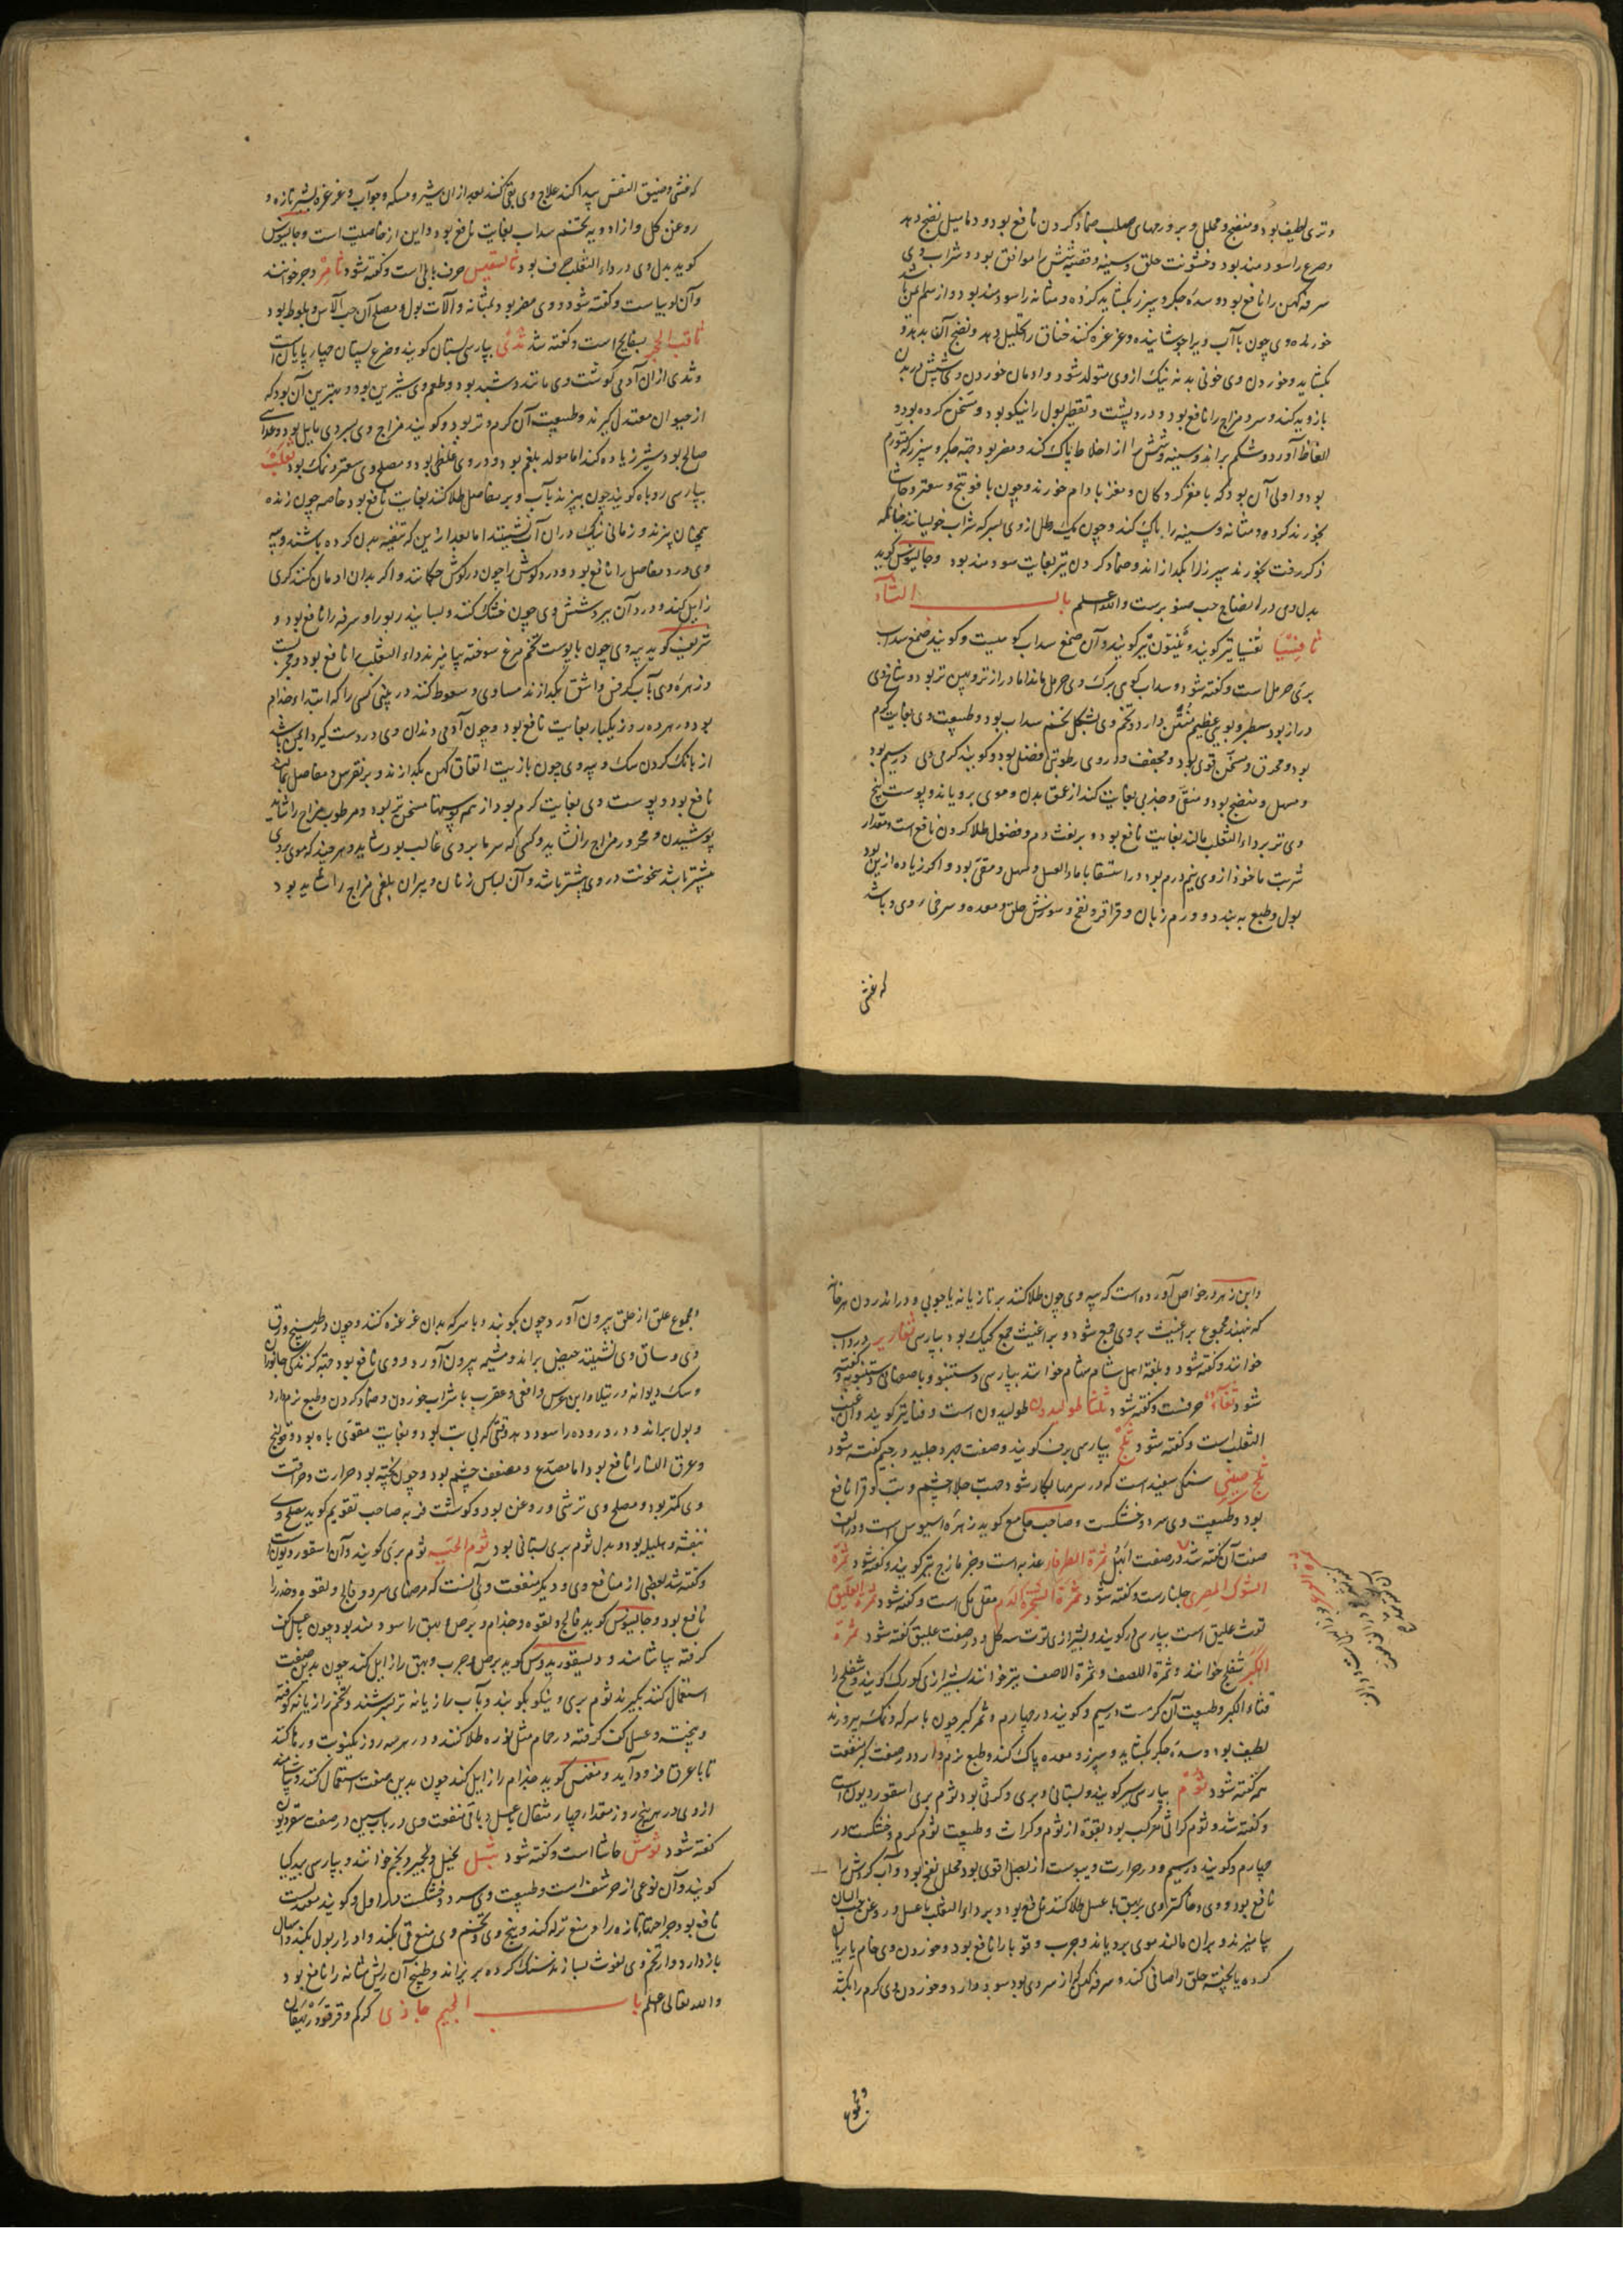 وتری لطیف بود و منضج و محلل و برورمهای صلب ضماد کردن نافع بود و دمامیل نضج دهد
و صرع را سودمند بود و خشونت حلق و سینه و قصبه شش را موافق بود و شراب وی
سرفه کهن را نافع بود و سده جگر و سپرز بگشاید کرده و مثانه را سودمند بود و از سم ایمن باشد
خورنده وی چون با آب ویرا جوشانیده و غرغره کنند خناق را تحلیل دهد و نضج آن بدهد و
بگشاید و خوردن وی خونی بد نه نیک از وی متولد شود و ادمان خوردن وی شپش در بدن
بازدید کند و سرد مزاج را نافع بود و درد پشت و تقطیر بول را نیکو بود و مسخن گرده بود و
الفاظ آورد و شکم براند و سینه و شش را از اخلاط پاک کند و مضر بود جهة جگر و سپرز که متورم
بود و اولی آن بود که با مغز گردکان و مغز بادام خورند و چون با فوتنج و سعتر و حاشا
بخورند کرده و مثانه و سینه را پاک کند و چون یک رطل از وی بسرکه شراب خیسانند چنانکه
ذکر رفت بخورند سپرز را بگدازاند و ضماد کردن نیز بغایت سودمند بود و جالینوس گوید
بدل وی در انضاج حب صنوبرست والله اعلم باب الثاء
ثافسیا تفسیا نیز گویند و ینتون نیز گویند و آن صمغ سداب کوهیست و گویند صمغ سداب
بری حرمل است و گفته شود و سداب کوهی برگ وی حرمل ماند اما درازتر و پهن تر بود و شاخ وی
دراز بود سطبر و بویی عظیم منتن دارد و تخم وی بشکل تخم سداب بود و طبیعت وی بغایت گرم
بود و محرق و مسخن قوی بود و مجفف و در وی رطوبتی فضل بود و گویند گرمی وی در سیم بود
و مسهل و منضج بود و منقی و جذبی بغایت کند از عمق بدن و موی برویاند و پوست بیخ
وی تر بر داء الثعلب مالند بغایت نافع بود و بر نفث دم و فضول طلا کردن نافع است و مقدار
شربت ماخوذ از وی نیم درم بود و در استسقا با ماء العسل و مسهل و مقی بود و اگر زیاده ازین بود
بول و طبع ببندد و ورم زبان و قراقر و نفخ و سوزش حلق و معده و سرخی روی و باشد
که غشی
که غشی و ضیق النفس پیدا کند علاج وی بقی کنند بعد از ان شیر و مسکه و جوآب و غرغره بشیر تازه و
روغن گل و از ادویه بتخم سداب بغایت نافع بود و این از خاصیت است و جالینوس
گوید بدل وی در داء الثعلب حرف بود ثالسفیس حرف بابلی است و گفته شود ثامر و جر خوانند
و آن لوبیاست و گفته شود و وی مضر بود بمثانه و آلات بول و مصلح آن حب الآس و بلوط بود
ثاقب الحجر بسفایج است و گفته شد ثدی بپارسی پستان گویند و ضرع پستان چهارپایان است
و ثدی از ان آدمی گوشت وی مانند و شبیه بود و طعم وی شیرین بود و بهترین آن بود که
از حیوان معتدل گیرند و طبیعت آن گرم و تر بود و گویند مزاج وی بسردی مایل بود و غذای
صالح بود شیر زیاده کند اما مولد بلغم بود و در وی غلظی بود و مصلح وی سعتر و نمک بود ثعلب
بپارسی روباه گویند چون بپزند بآب و بر مفاصل طلا کنند بغایت نافع بود خاصه چون زنده
همچنان پزند و زمانی نیک در ان آب نشینند اما بعد ازین که تنقیه بدن کرده باشند و پیه
وی درد مفاصل را نافع بود و درد گوش را چون در گوش چکانند و اگر بدان ادمان کنند کری
زایل کند و درد آن ببرد شش وی چون خشک کنند و بسایند ربو را و سرفه را نافع بود و
شریف گوید پیه وی چون با پوست تخم مرغ سوخته بیامیزند داء الثعلب را نافع بود و مجربست
و زهره وی بآب کرفس و اشق بگدازند مساوی و سعوط کنند در بینی کسی را که ابتداء جذام
بود در هر ده روز یکبار بغایت نافع بود و چون آدمی دندان وی در دست گیرد ایمن باشد
از بانگ کردن سگ و پیه وی چون با زیت انفاق کهن بگدازند و بر نقرس و مفاصل بمالند
نافع بود و پوست وی بغایت گرم بود از همه پوستها مسخن تر بود و مرطوب مزاج را شاید
پوشیدن و محرور مزاج را نشاید و کسی که سرما بر وی غالب بود شاید و هر چند که موی بر وی
بیشتر باشد سخونت در وی بیشتر باشد و آن لباس زنان و پیران بلغمی مزاج را شاید بود
و ابن زهر در خواص آورده است که پیه وی چون طلا کنند بر تازیانه یا چوبی و در اندرون هر خانه
که نهند مجموع براغیث بر وی جمع شود و براغیث جمع کیک بود بپارسی ثغاریر در داب
خوانند و گفته شود و بلغة اهل شام شمام خوانند بپارسی دستنبو و باصفهانی دستنبویه و گفته
شود ثفاء حرفست و گفته شود ثلثا طولیدون طولیدون است و فنا نیز گویند و آن عنب
الثعلب است و گفته شود ثلج بپارسی برف گویند و صفت جبر و جلید در جیم گفته شود
ثلج صینی سنگی سفید است که در سرمها بکار شود جهت جلا چشم و تب و قرا نافع
بود و طبیعت وی سرد و خشکست و صاحب جامع گوید زهره اسیوس است و در الف
صفت آن گفته شد در صفت اثل ثمرة الطرفاء عذبه است و جزمازج نیز گویند و گفته شود ثمرة
الشوک المصری جلنارست و گفته شود ثمرة الشجرة الدم مقل مکی است و گفته شود ثمرة العلیق
توث علیق است بپارسی در گویند و بشیرازی توت سه گل و در صفت علیق گفته شود ثمرة
الکبر شفلح خوانند و ثمرة اللصف و ثمرة الاصف نیز خوانند بشیرازی کورک گویند و شفلح را
قثاء الکبر و طبیعت آن گرمست در سیم و گویند در چهارم و ثمر کبر چون با سرکه و نمک بپرورند
لطیف بود و سده جگر بگشاید و سپرز و معده پاک کند و طبع نرم دارد و در صفت کبر منفعت
هم گفته شود ثوم بپارسی سیر گویند و بستانی و بری و کراثی بود ثوم بری اسقوردیون است
و گفته شد و ثوم کراثی مرکب بود بقوة از ثوم و کراث و طبیعت ثوم گرم و خشکست در
چهارم و گویند در سیم و در حرارت و یبوست از بصل اقوی بود محلل نفخ بود و آب گردش را
نافع بود و وی و خاکستر وی بر بهق با عسل طلا کنند نافع بود و بر داء الثعلب با عسل و روغن حب البان
بیامیزند و بران مالند موی برویاند و جرب و قوبا را نافع بود و خوردن وی خام یا بریان
کرده یا پخته حلق را صافی کند و سرفه کهن که از سردی بود سود دارد و خوردن وی کرم را بکشد
و مجموع
و مجموع علق از حلق بیرون آورد چون بکوبند و با سرکه بدان غرغره کنند و چون در طبیخ ورق
وی و ساق وی نشینند حیض براند و مشیمه بیرون آورد و وی نافع بود جهة گزندگی جانوران
و سگ دیوانه و رتیلا و ابن عرس و افعی و عقرب با شراب خوردن و ضماد کردن و طبع نرم دارد
و بول براند و درد روده را سود دهد وقتی که بی تب بود و بغایت مقوی باه بود و قولنج
و عرق النسا را نافع بود اما مصدع و مضعف چشم بود و چون پخته بود حرارت و حرافت
وی کمتر بود و مصلح وی ترشی و روغن بود و گوشت فربه صاحب تقویم گوید مصلح وی
بنفشه و هلیله بود و بدل ثوم بری بستانی بود ثوم الحیه ثوم بری گویند و آن اسقوردیون است
و گفته شد بعضی از منافع وی و دیگر منفعت وی آنست که مرضهای سرد و فالج و لقوه و خدر را
نافع بود و جالینوس گوید فالج و لقوه و جذام و برص و بهق را سودمند بود چون با عسل کف
گرفته بیاشامند و دیسقوریدوس گوید برص و جرب و بهق را زایل کند چون بدین صفت
استعمال کنند بگیرند ثوم بری و نیکو بکوبند و بآب رازیانه تر بسرشند و تخم رازیانه کوفته
و بیخته و عسل کف گرفته در حمام مثل نوره طلا کنند و در هر سه روز یک نوبت و رها کنند
تا با عرق فرود آید و مفنس گوید جذام را زایل کند چون بدین صفت استعمال کنند و بیاشامند
از وی در هر پنج روز مقدار چار مثقال با عسل و باقی منفعت وی در باب سین در صفت سقوردیون
گفته شود ثومش حاشا است و گفته شود ثیل نجیل و نجیر و نجم خوانند و بپارسی بیدگیا
گویند و آن نوعی از حرشف است و طبیعت وی سرد و خشکست در اول و گویند معتدلست
نافع بود جراحتهاء تازه را و منع نزله کند و بیخ وی و تخم وی منع قی بکند و ادرار بول بکند و اسهال
باز دارد و از تخم وی لغوث بسازند سنگ کرده بریزاند و طبیخ آن ریش مثانه را نافع بود
والله تعالی اعلم باب الجیم جاذی کرکم و قرقو زنبقان